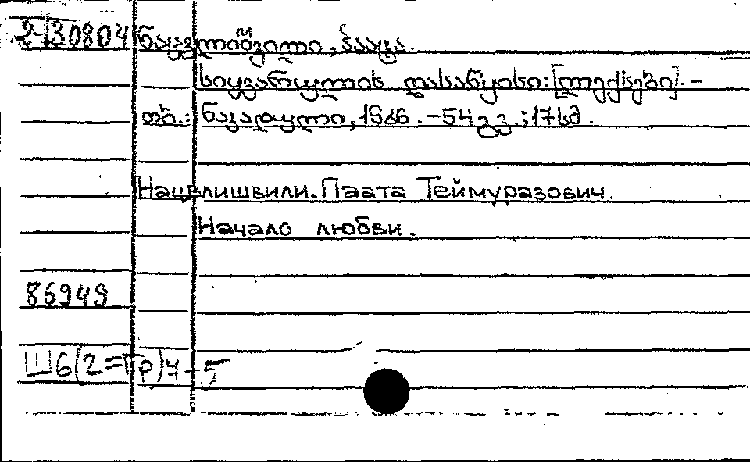 2-130804 ნაცვლიშვილი, პაატა.
სიყვარულის დასაწყისი: [ლექსები]. -
თბ.: ნაკადული, 1986. - 54 გვ.; 17 სმ.
Нацвлишвили. Паата Теймуразович.
Начало любви.
86949
Ш6(2=Гр)7-5